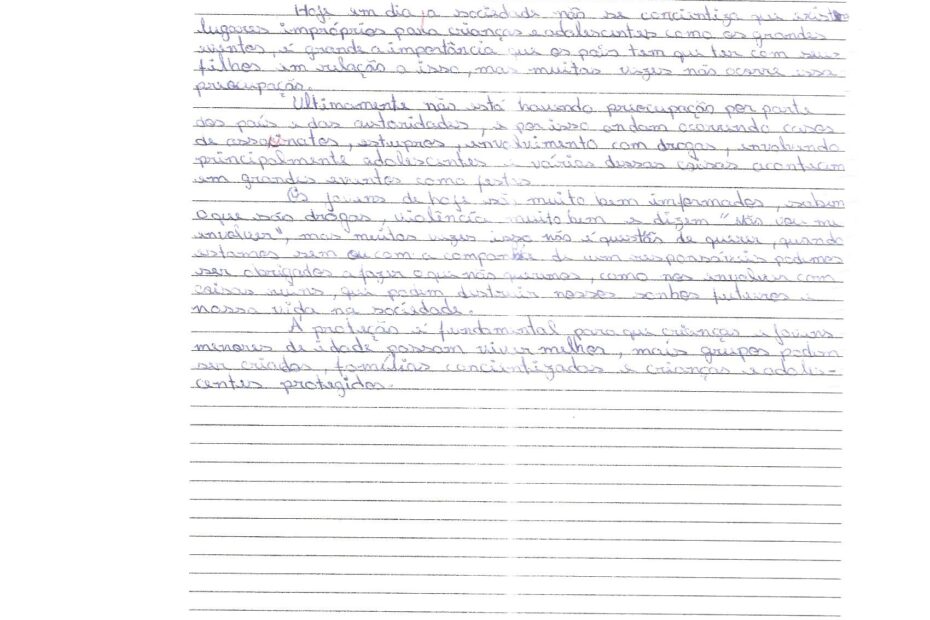 Hoje em dia, a sociedade não se concientiza que existe
lugares impróprios para crianças e adolescentes como os grandes
eventos, é grande a importância que os pais tem que ter com seus
filhos em relação a isso, mas muitas vezes não ocorre essa
preocupação.
Ultimamente não está havendo preocupação por parte
dos pais e das autoridades, e por isso andam ocorrendo casos
de assasinatos, estupros, envolvimento com drogas, envolvendo
principalmente adolescentes e várias dessas coisas acontecem
em grandes eventos como festas
Os jovens de hoje são muito bem informados, sabem
o que são drogas, violência muito bem e dizem "Não vou me
envolver", mas muitas vezes isso não é questão de querer, quando
estamos sem ou com a companhia de um responsáveis podemos
ser obrigados a fazer o que não queremos, como nos envolver com
coisas ruins, que podem destruir nossos sonhos futuros e
nossa vida na sociedade.
A proteção é fundamental para que crianças e jovens
menores de idade possam viver melhor, mais grupos podem
ser criados, famílias concientizadas e crianças e adoles-
centes protegidos.